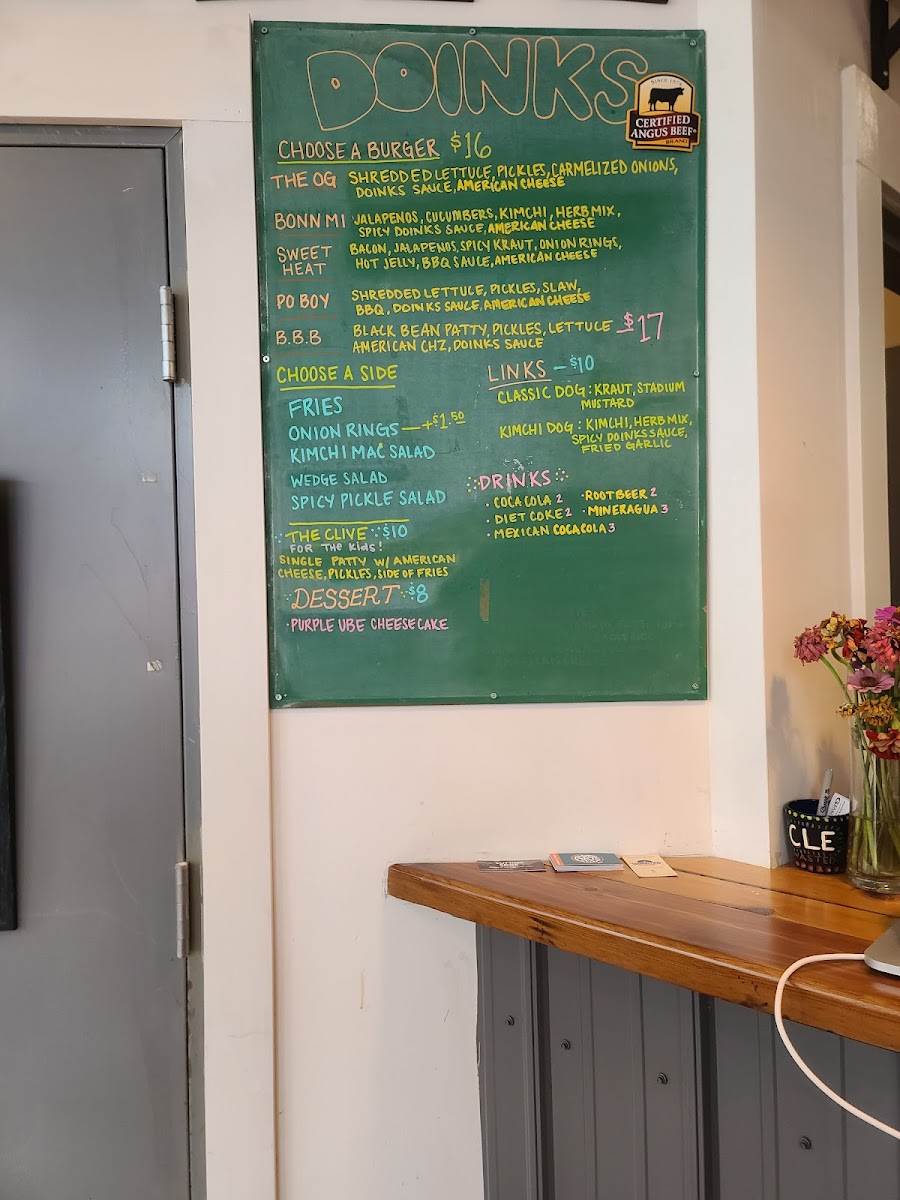 DOINKS
SINCE 1978
CERTIFIED
ANGUS BEEF®
BRAND
CHOOSE A BURGER $16
THE OG SHREDDED LETTUCE, PICKLES, CARMELIZED ONIONS,
DOINKS SAUCE, AMERICAN CHEESE
BONN MI JALAPENOS, CUCUMBERS, KIMCHI, HERB MIX,
SPICY DOINKS SAUCE, AMERICAN CHEESE
SWEET HEAT BACON, JALAPENOS, SPICY KRAUT, ONION RINGS,
HOT JELLY, BBQ SAUCE, AMERICAN CHEESE
PO BOY SHREDDED LETTUCE, PICKLES, SLAW,
BBQ, DOINKS SAUCE, AMERICAN CHEESE
B.B.B BLACK BEAN PATTY, PICKLES, LETTUCE — $17
AMERICAN CHZ, DOINKS SAUCE
CHOOSE A SIDE
FRIES
ONION RINGS — +$1.50
KIMCHI MAC SALAD
WEDGE SALAD
SPICY PICKLE SALAD
THE CLIVE $10
FOR THE KIDS!
SINGLE PATTY W/ AMERICAN
CHEESE, PICKLES, SIDE OF FRIES
DESSERT $8
· PURPLE UBE CHEESECAKE
LINKS — $10
CLASSIC DOG: KRAUT, STADIUM
MUSTARD
KIMCHI DOG: KIMCHI, HERB MIX,
SPICY DOINKS SAUCE,
FRIED GARLIC
DRINKS
· COCA COLA 2 · ROOT BEER 2
· DIET COKE 2 · MINERAGUA 3
· MEXICAN COCA COLA 3
CLE